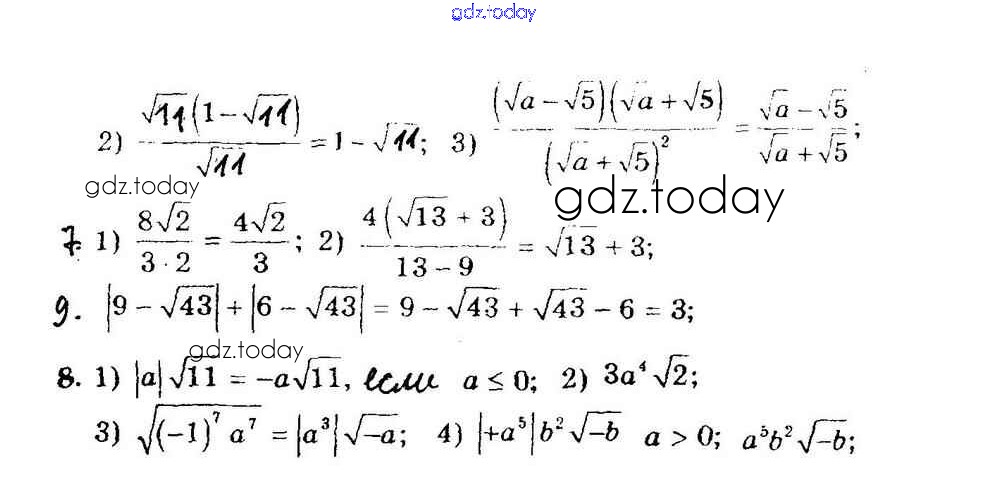 gdz.today
2) √11(1−√11)/√11 = 1 − √11; 3) (√a − √5)(√a + √5)/(√a + √5)² = √a − √5/√a + √5;
gdz.today
gdz.today
7. 1) 8√2/3 · 2 = 4√2/3; 2) 4(√13 + 3)/13 − 9 = √13 + 3;
9. |9 − √43| + |6 − √43| = 9 − √43 + √43 − 6 = 3;
gdz.today
8. 1) |a|√11 = −a√11, если a ≤ 0; 2) 3a⁴√2;
3) √(−1)⁷ a⁷ = |a³|√−a; 4) |+a⁵|b²√−b a > 0; a⁵b²√−b;